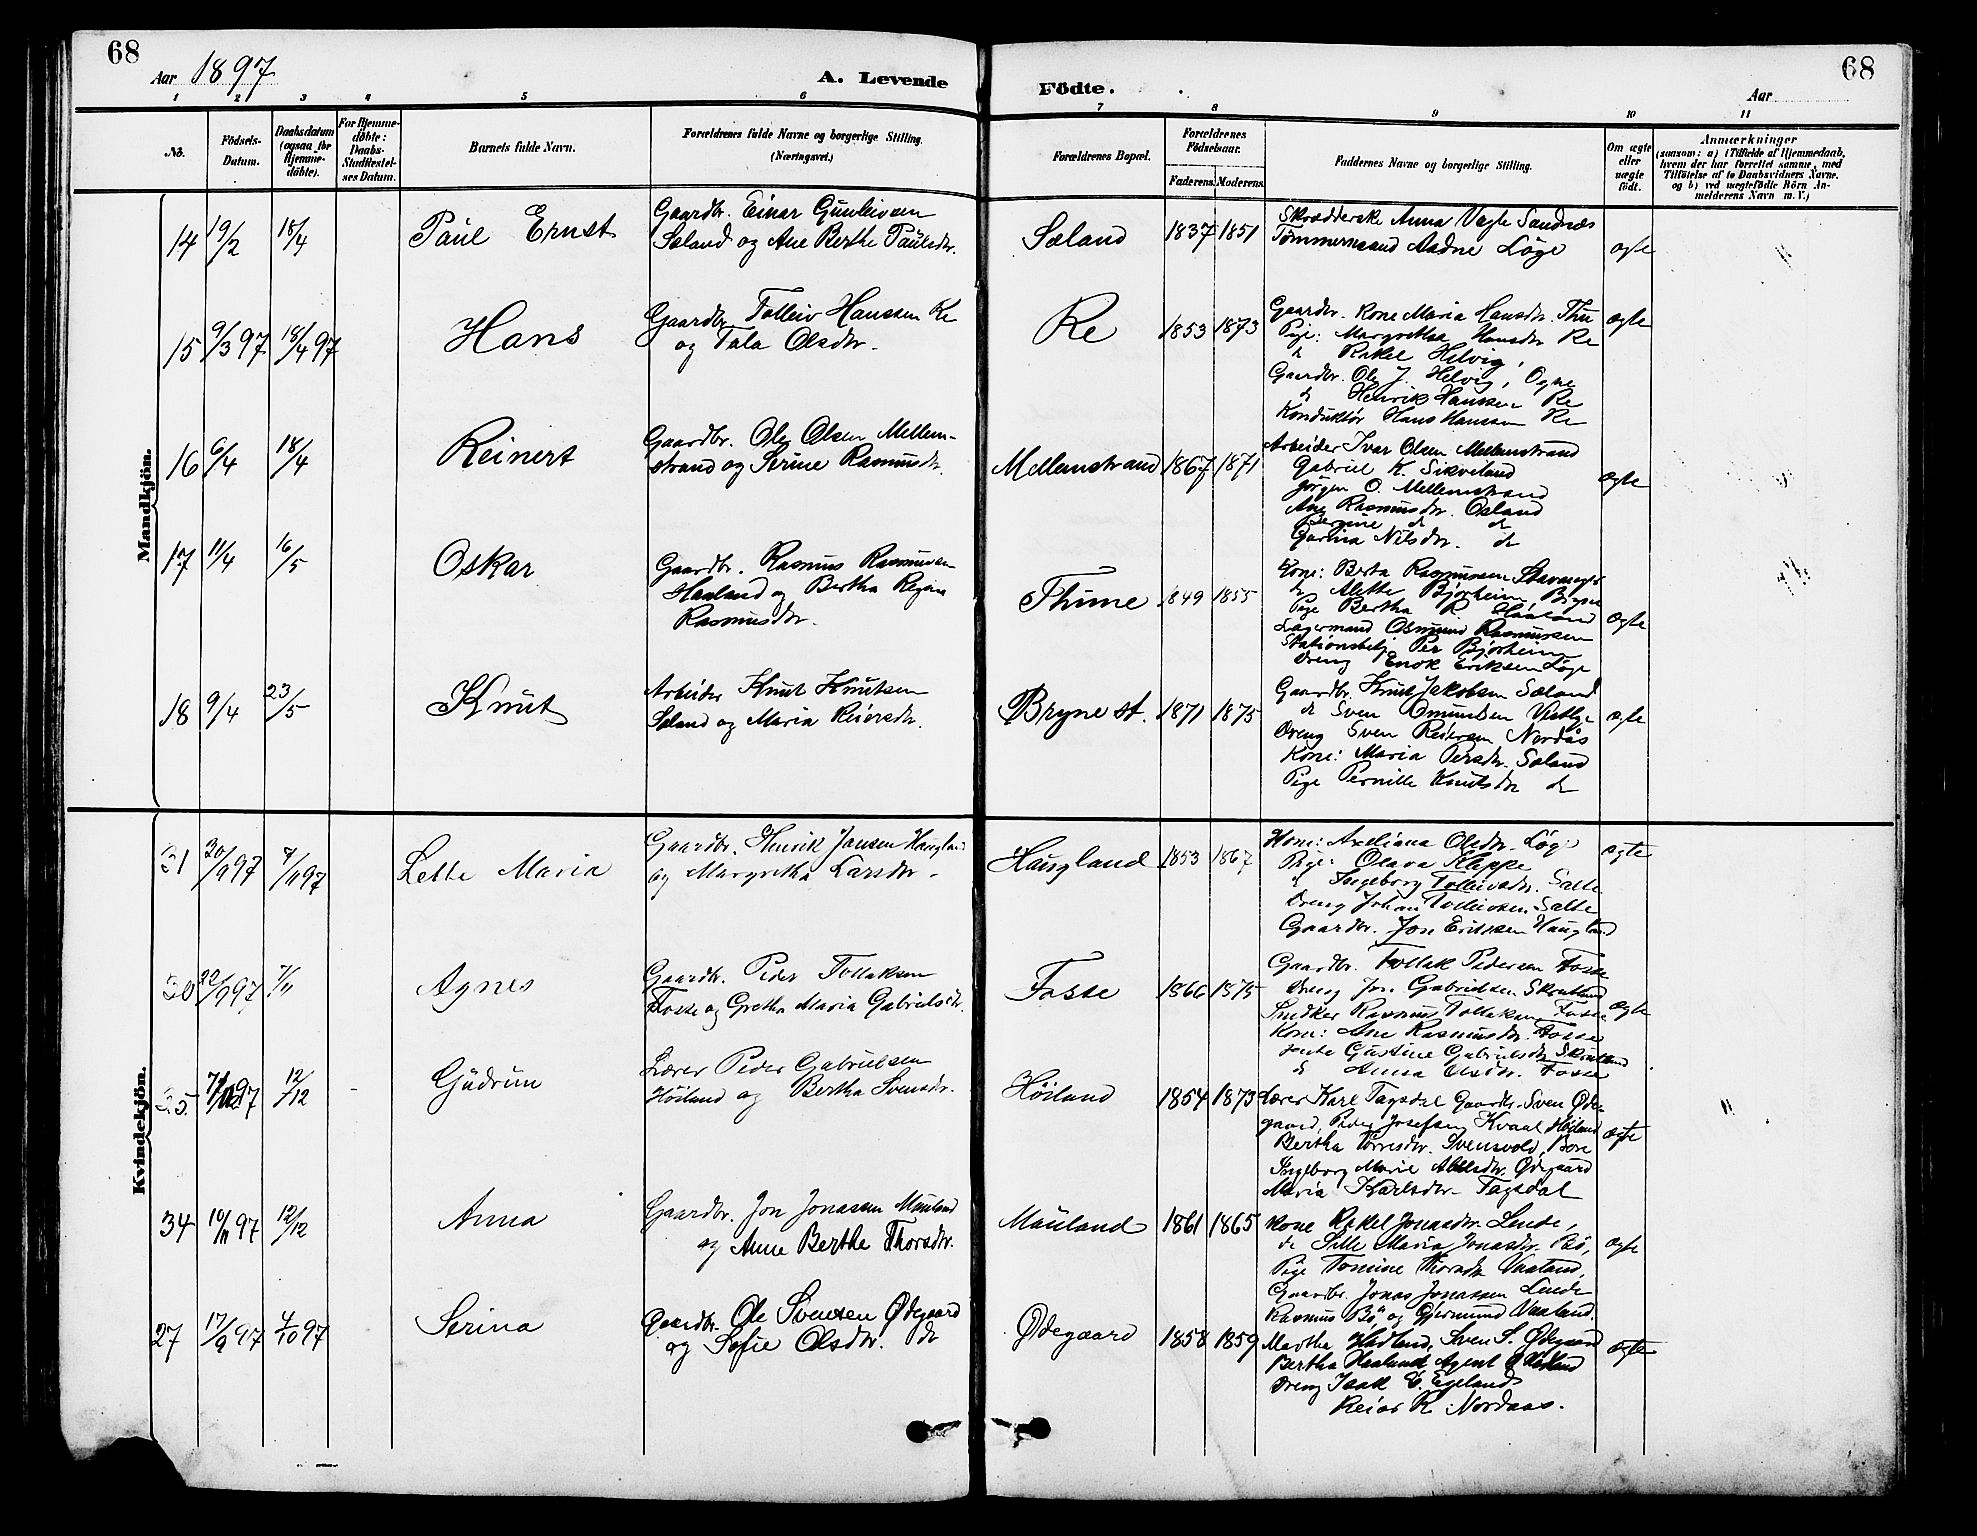 68
Aar 1897
A. Levende
Födte.
68
Aar
1 2 3 4 5 6 7 8 9 10 11
No.
Födsels-Datum.
Daabsdatum (ogsaa for Hjemmedöbte).
For Hjemmedöbte: Daabs-Stadfæstelses Datum.
Barnets fulde Navn.
Forældrenes fulde Navne og borgerlige Stilling. (Næringsvei.)
Forældrenes Bopæl.
Forældrenes Födselsaar.
Faderens. Moderens.
Faddernes Navne og borgerlige Stilling.
Om ægte eller uægte födt.
Anmærkninger
(saasom: a) i Tilfælde af Hjemmedaab, hvem der har forrettet samme, med Tilföielse af to Daabsvidners Navne, og b) ved uægtefödte Börn Anmelderens Navn m. V.)
Mandkjön.
14 19/2 18/4 Paul Ernst
Gaardbr. Einar Gunleivsen
Sæland og Ane Berthe Paulsdtr.
Sæland 1837 1851
Skrædderske Anna Vagle Sandnæs
Tømmermand Aadne Løge
ægte
15 9/3 97 18/4 97 Hans
Gaardbr. Tolleiv Hanssen Re
og Tala Olsdtr.
Re 1853 1873
Gaardbr. Kone Maria Hansdtr. Thu
Pige: Margretha Hansdtr Re
d Rakel Helvig,
Gaardbr. Ole J. Helvig, Ogne
d Henrik Hanssen Re
Konduktør Hans Hanssen Re
ægte
16 6/4 18/4 Reinert
Gaardbr. Ole Olsen Mellem-
strand og Serine Rasmusdtr.
Mellemstrand 1867 1871
Arbeider Ivar Olsen Mellemstrand
Gabriel K. Sikveland
Jørgen O. Mellemstrand
Ane Rasmusdtr. Osland
Bertine d d
Garina Nilsdtr. d
ægte
17 11/4 16/5 Oskar
Gaardbr. Rasmus Rasmussen
Haaland og Bertha Regina
Rasmusdtr.
Thime 1849 1855
Kone: Berta Rasmussen
d Alette Bjørheim, Bryne
Pige Bertha R. Haaland
Lagermand Osmund Rasmussen
Stationsbetj. Per Bjørheim
Dreng Enok Eriksen Løge
ægte
18 9/4 23/5 Knut
Arbeider Knut Knutsen
Sæland og Maria Reiersdtr.
Bryne st. 1871 1875
Gaardbr. Knut Jakobsen Sæland
d Sven Omundsen Vestly
Dreng Sven Reiersen Nordås
Kone: Maria Persdtr. Sæland
Pige Pernille Knutsdtr d
ægte
Kvindekjön.
31 20/9 97 7/11 97 Lette Maria
Gaardbr. Henrik Jansen Haugland
og Margretha Larsdtr.
Haugland 1853 1867
Kone: Axeliana Olsdtr. Løge
Pige: Olava Kleppe
d Ingeborg Tolleivsdtr. Salte
Dreng Johan Tolleivsen Salte
Gaardbr. Jon Eriksen Haugland
ægte
30 22/9 97 7/11 Agnes
Gaardbr. Peder Tollaksen
Fosse og Grethe Maria Gabrielsdtr.
Fosse 1866 1875
Gaardbr. Tollak Pedersen Fosse
Dreng Jon Gabrielsen Skretland
Snedker Rasmus Tollaksen Fosse
Kone: Ane Rasmusdtr. Fosse
Jente Gustine Gabrielsdtr Skretland
d Anna Olsdtr. Fosse
ægte
35 97 12/12 Gudrun
Lærer Peder Gabrielsen
Höiland og Bertha Svensdtr.
Höiland 1854 1873
Lærer Karl Tagsdal Gaardbr. Sven Øde-
gaard, Peder Josefsen Kvaal, Höiland
Bertha Torresdtr. Svensvold, Bore
Ingeborg Marie Abelsdtr. Ødegaard
Maria Karlsdtr. Tagsdal
ægte
34 10/11 97 12/12 Anna
Gaardbr. Jon Jonassen Mauland
og Anne Berthe Thorsdtr.
Mauland 1861 1865
Kone Rakel Jonasdtr. Lende,
d Sille Maria Jonasdtr. Bö,
Pige Tomine Thorsdtr Vaaland,
Gaardbr. Jonas Jonassen Lende
Rasmus Bö og Gjermund Vaaland.
ægte
27 17/9 97 4/10 97 Serina
Gaardbr. Ole Svensen Ødegaard
og Sofie Olsdtr. d
Ødegaard 1858 1859
Martha Hadland, Sven S. Ødegaard
Bertha Haaland Agent
Dreng Isak E. Egeland
Reiar R. Nordaas.
ægte